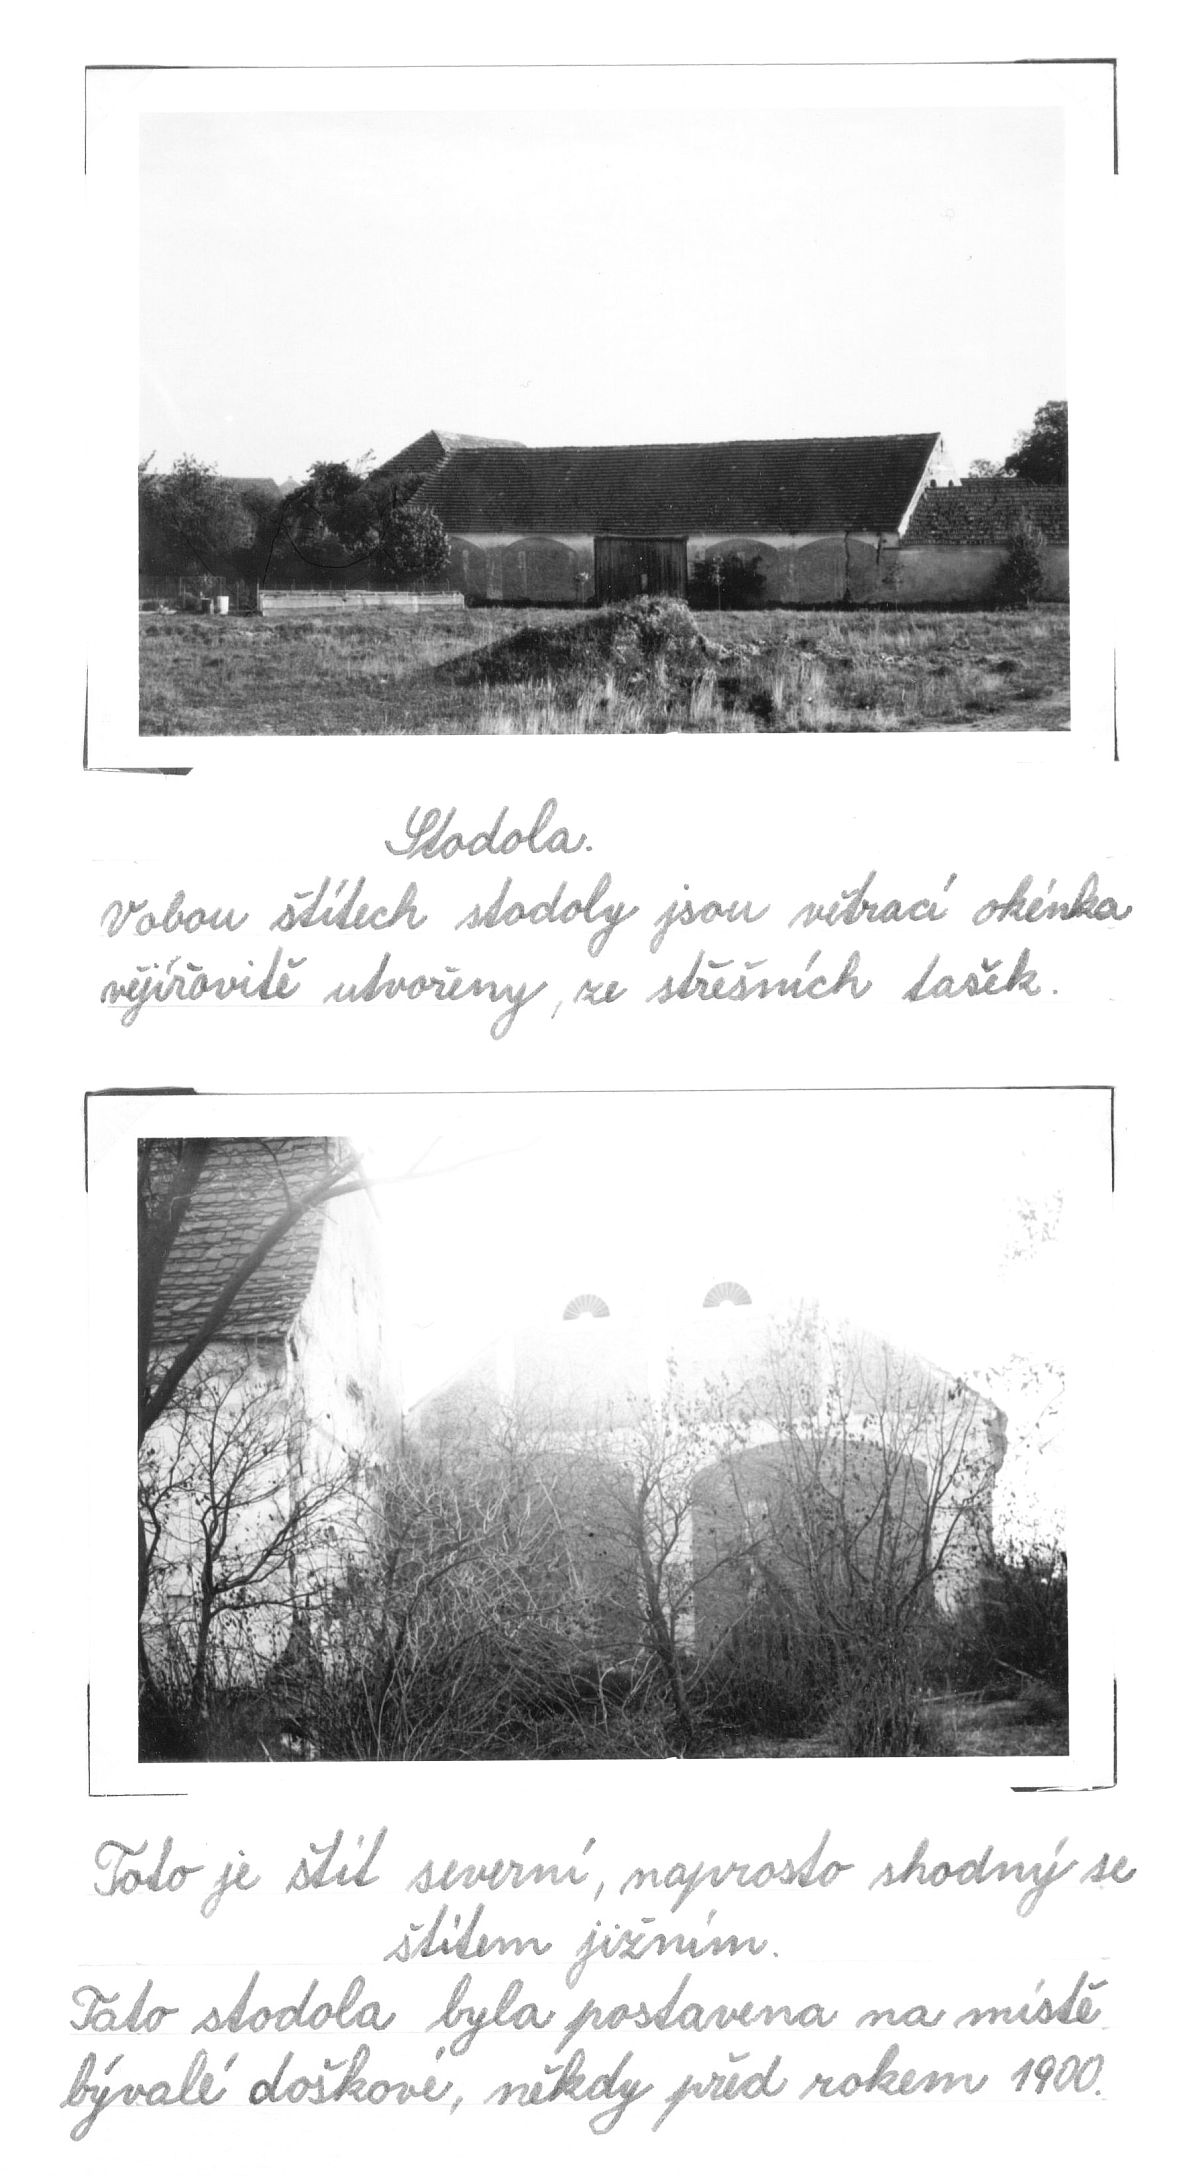 Stodola.
V obou štítech stodoly jsou větrací okénka
vějířovitě utvořeny, ze střešních tašek.
Toto je štít severní, naprosto shodný se
štítem jižním.
Tato stodola byla postavena na místě
bývalé doškové, někdy před rokem 1900.